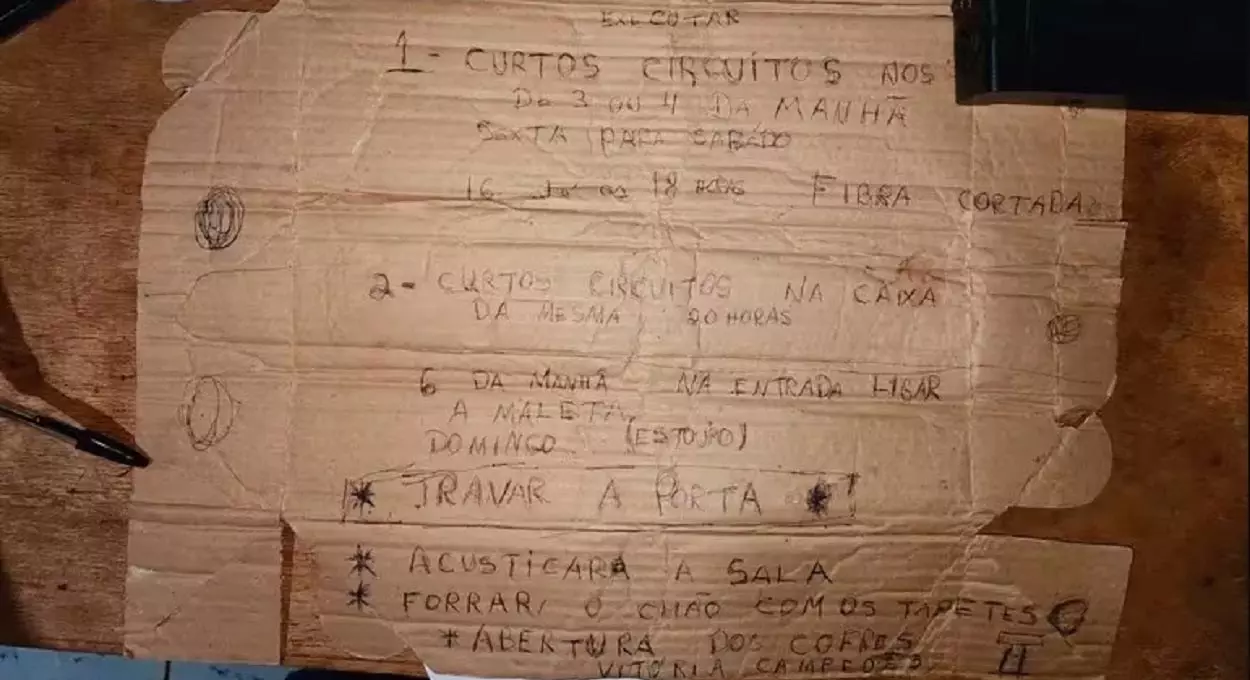 EXECUTAR
1- CURTOS CIRCUÍTOS NOS
DE 3 OU 4 DA MANHÃ
SEXTA PARA SABÁDO
16 18 FIBRA CORTADA
2- CURTOS CIRCUITOS NA CAIXA
DA MESMA 20 HORAS
6 DA MANHÃ NA ENTRADA LIGAR
A MALETA
DOMINGO (ESTOURO)
* TRAVAR A PORTA *!
* ACUSTICARA A SALA
* FORRAR O CHÃO COM OS TAPETES
* ABERTURA DOS COFRES
VITÓRIA CAMPEÕES